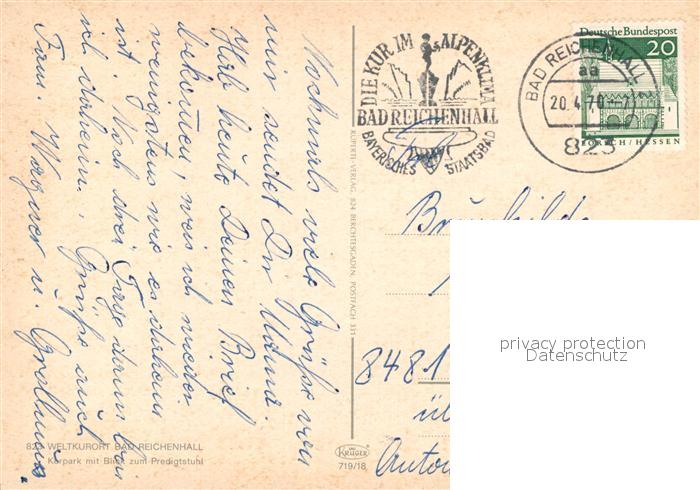 Nochmals viele Grüße von
mir sendet Dir Mama.
Hab heute Deinen Brief
bekommen, weis ich wieder
wenigstens wie es daheim
ist. Noch drei Tage dann bin
ich daheim. Grüße auch
Fam. Wagner u.
823 WELTKURORT BAD REICHENHALL
Kurpark mit Blick zum Predigtstuhl
RUPERTI-VERLAG, 824 BERCHTESGADEN, POSTFACH 331
KRÜGER
719/18
DIE KUR IM ALPENKLIMA
BAD REICHENHALL
BAYERISCHES STAATSBAD
BAD REICHENHALL
aa
20.4.70
823
Deutsche Bundespost
20
LORSCH/HESSEN
Brunhilde
8481
privacy protection
Datenschutz